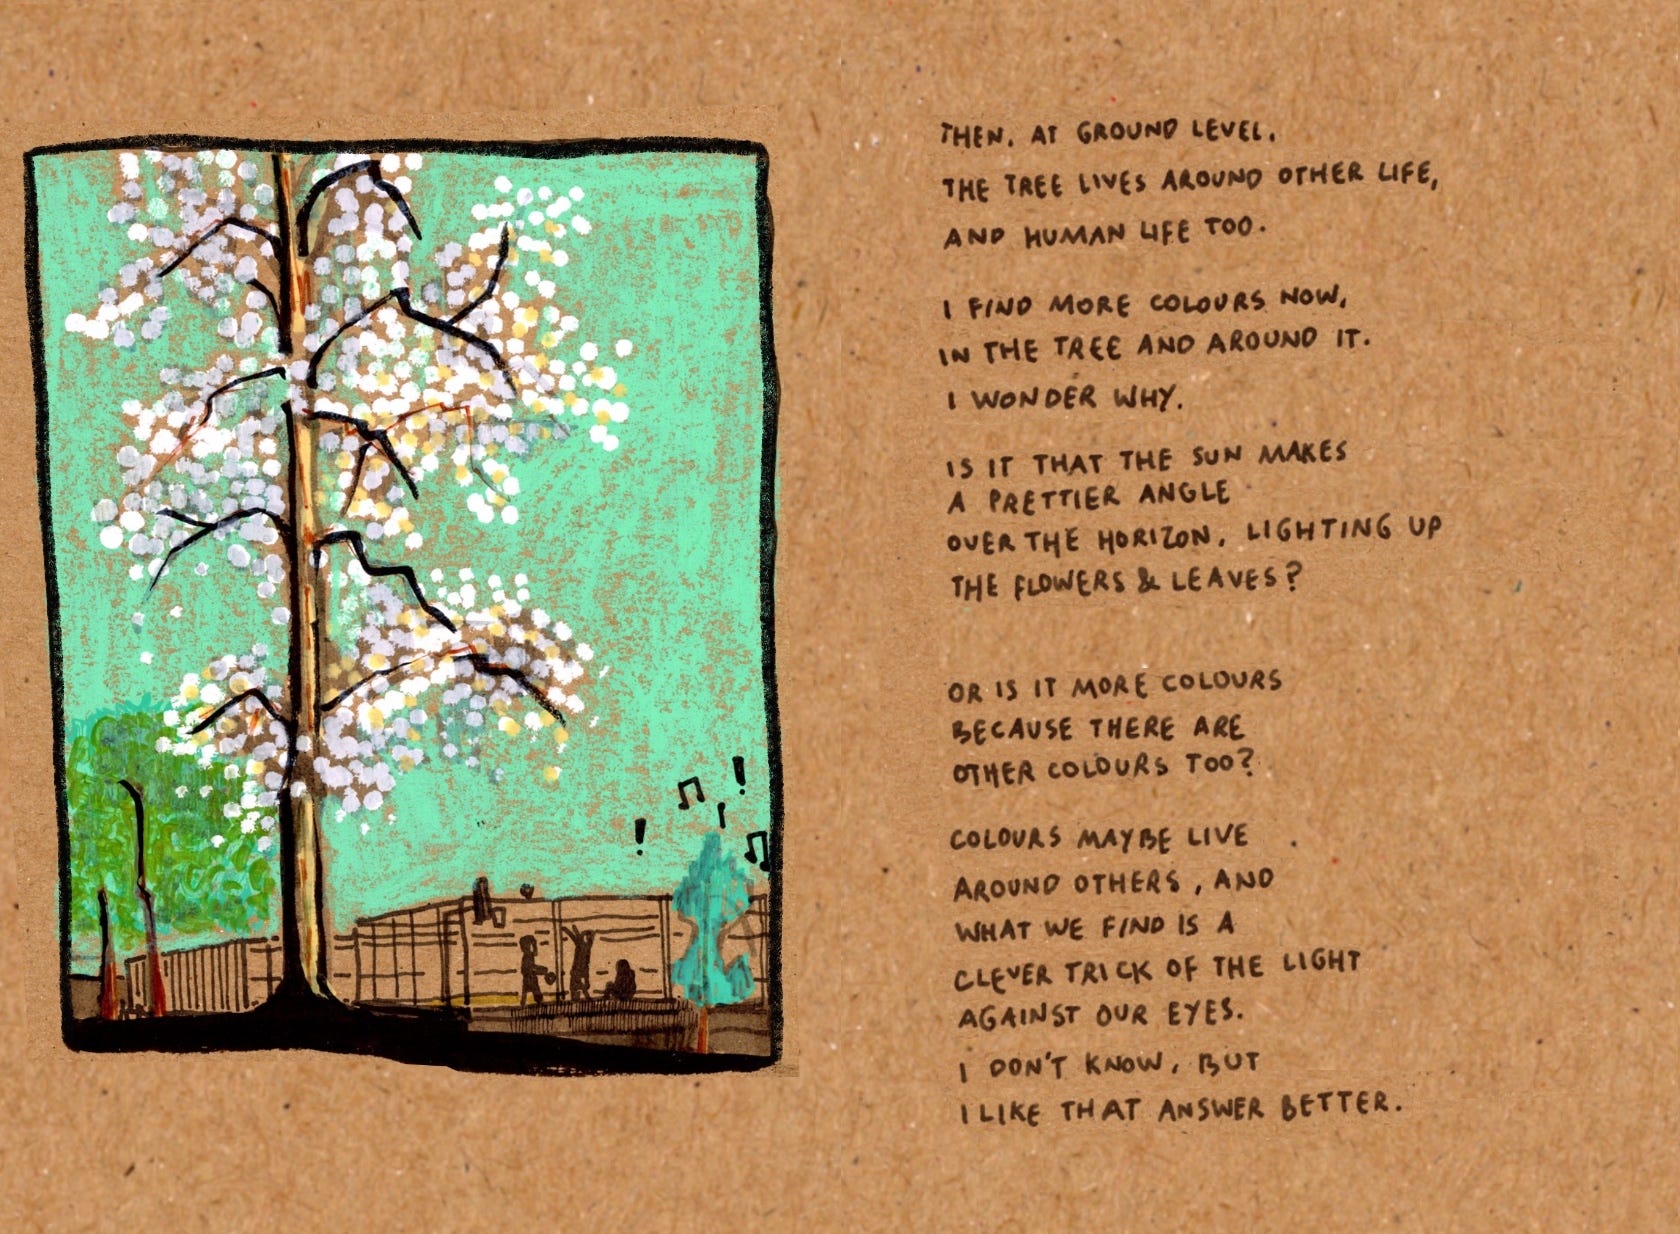 THEN, AT GROUND LEVEL,
THE TREE LIVES AROUND OTHER LIFE,
AND HUMAN LIFE TOO.
I FIND MORE COLOURS NOW,
IN THE TREE AND AROUND IT.
I WONDER WHY.
IS IT THAT THE SUN MAKES
A PRETTIER ANGLE
OVER THE HORIZON, LIGHTING UP
THE FLOWERS & LEAVES?
OR IS IT MORE COLOURS
BECAUSE THERE ARE
OTHER COLOURS TOO?
COLOURS MAYBE LIVE
AROUND OTHERS, AND
WHAT WE FIND IS A
CLEVER TRICK OF THE LIGHT
AGAINST OUR EYES.
I DON'T KNOW, BUT
I LIKE THAT ANSWER BETTER.